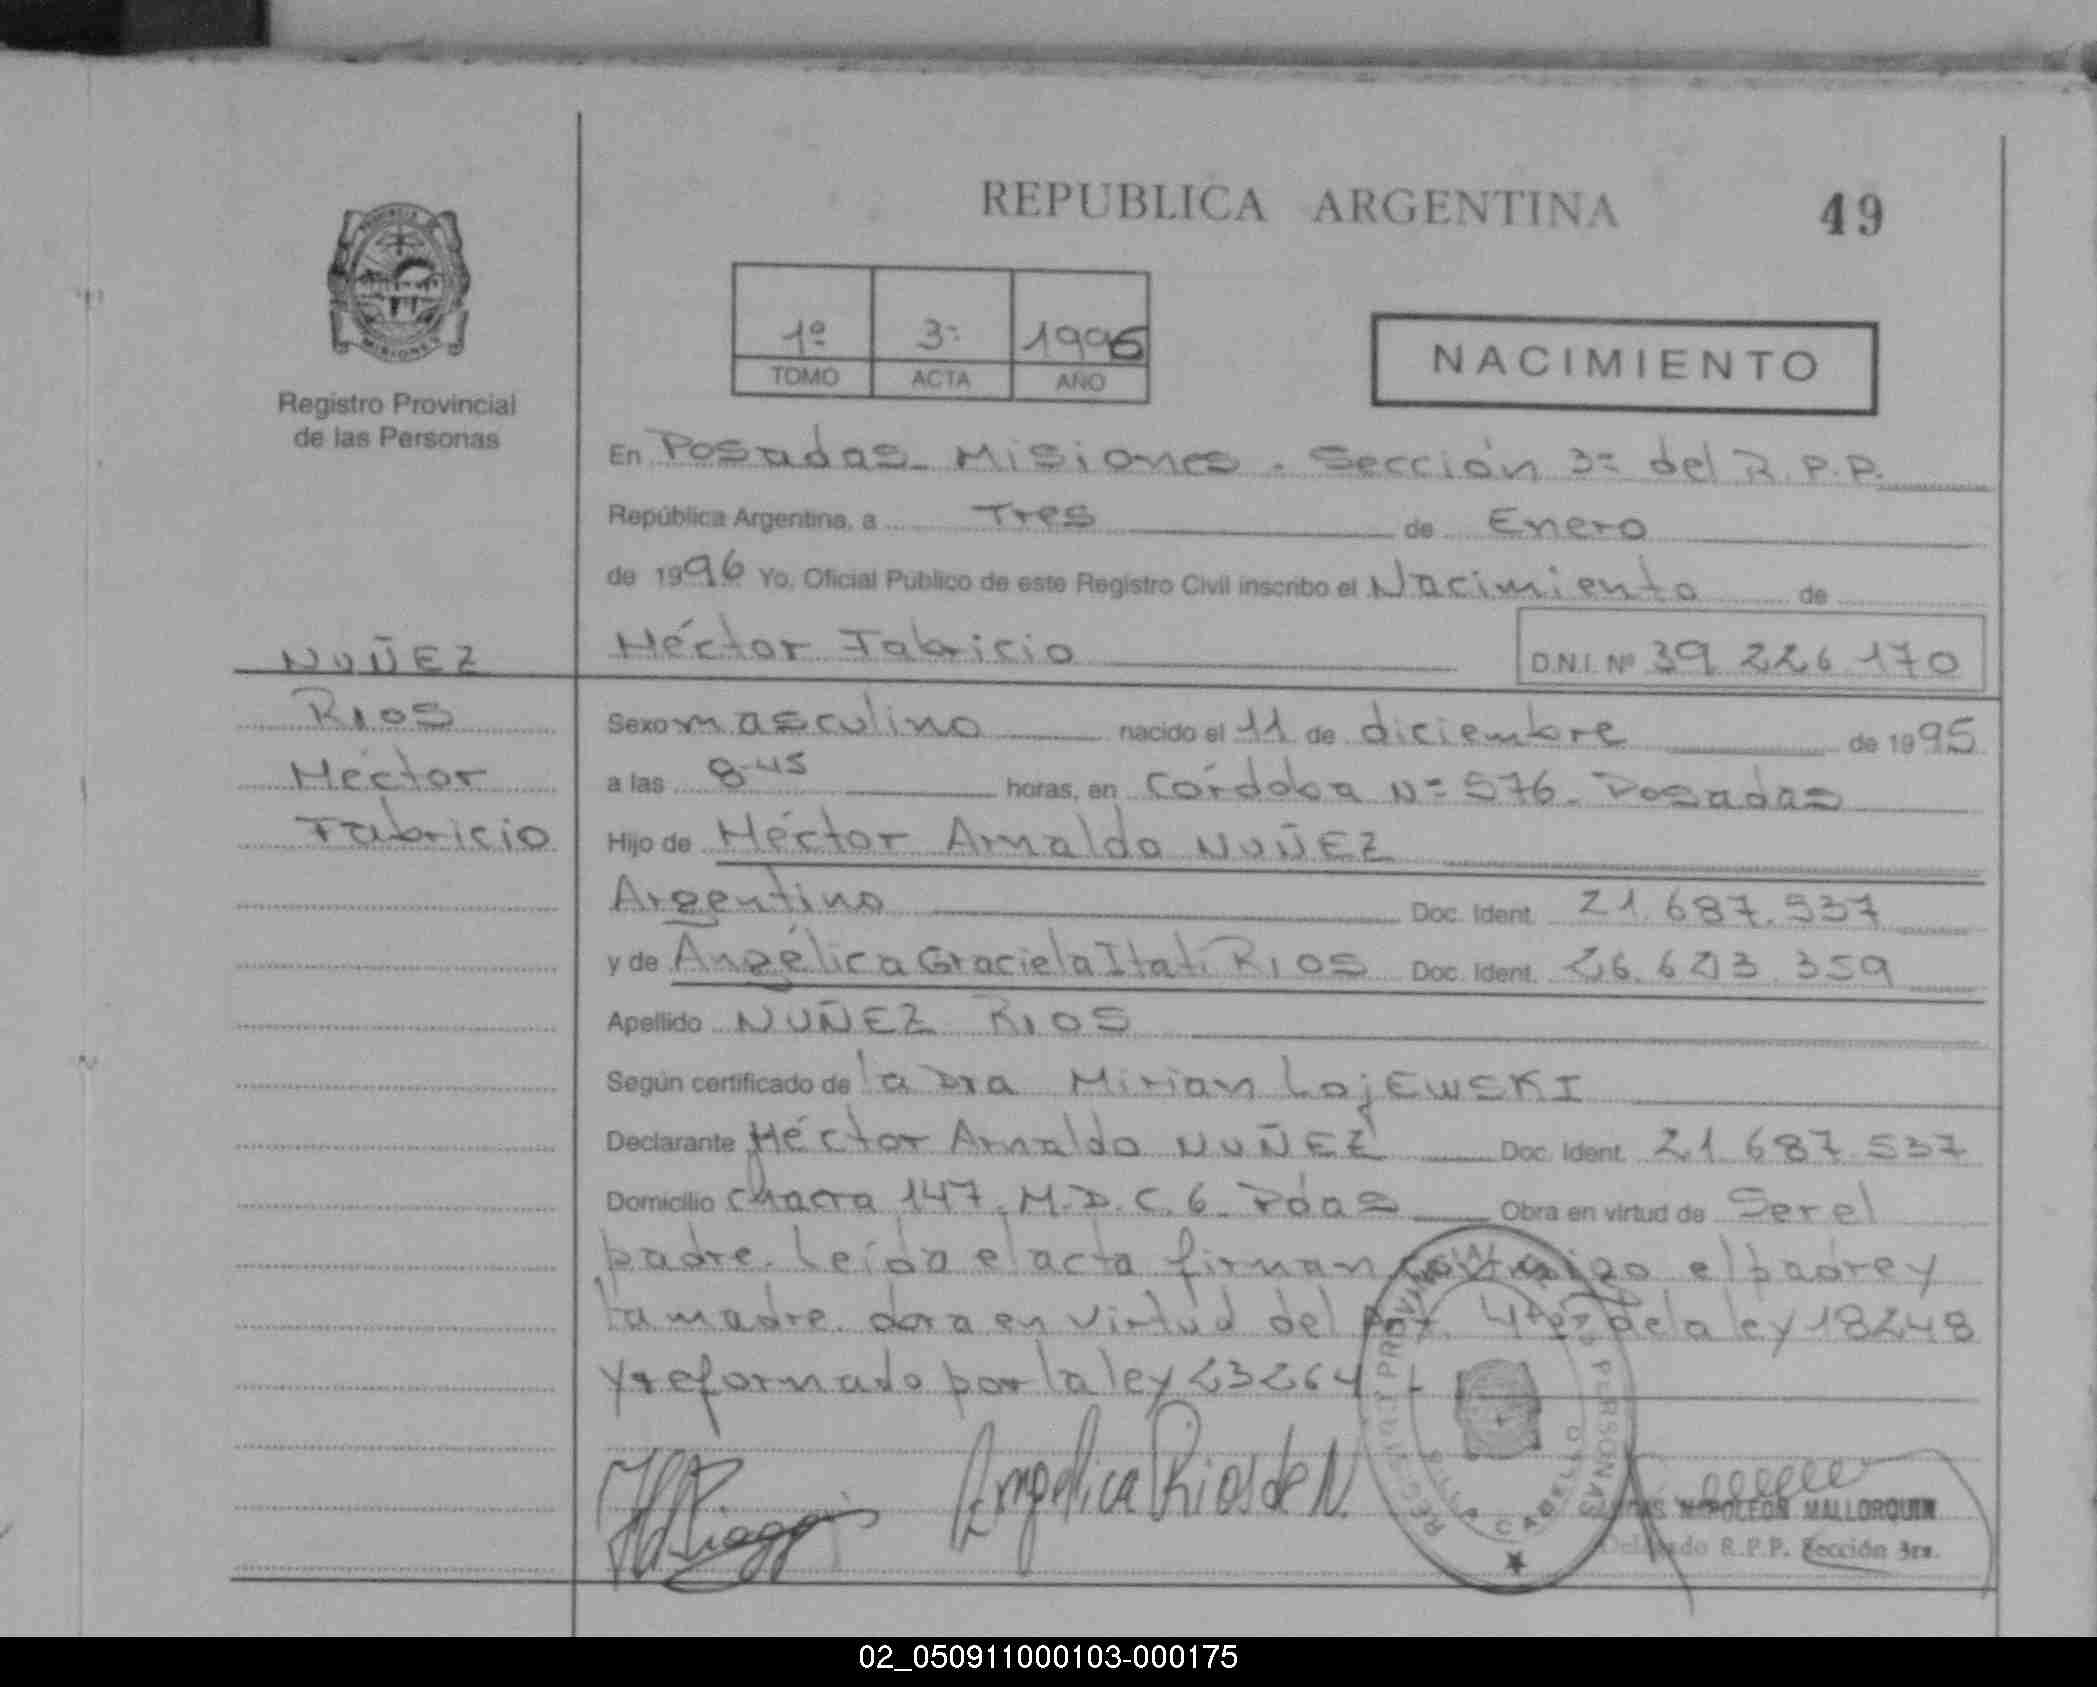 REPUBLICA ARGENTINA
49
1º 3º 1996
TOMO ACTA AÑO
NACIMIENTO
MISIONES
Registro Provincial
de las Personas
En Posadas Misiones. Sección 3º del R.P.P.
República Argentina, a Tres de Enero
de 1996 Yo, Oficial Público de este Registro Civil inscribo el Nacimiento de
Héctor Fabricio D.N.I. Nº 39 226 170
NUÑEZ
RIOS
Héctor
Fabricio
Sexo masculino nacido el 11 de diciembre de 1995
a las 8-45 horas, en Córdoba Nº 576. Posadas
Hijo de Héctor Arnaldo NUÑEZ
Argentino Doc. Ident. 21.687.537
y de Angélica Graciela Itatí RIOS Doc. Ident. 26.6 3.359
Apellido NUÑEZ RIOS
Según certificado de la Dra Mirian LojEWSKI
Declarante Héctor Arnaldo NUÑEZ Doc. Ident. 21.687.537
Domicilio chacra 147. M.D.C.6. Pdas Obra en virtud de Ser el
padre. Leída el acta firman conmigo el padre y
la madre. obra en virtud del de la ley 18248
y reformado por la ley 23264
Angélica Rios de N.
NAPOLEON MALLORQUIN
Delegado R.P.P. Sección 3ra.
02_050911000103-000175